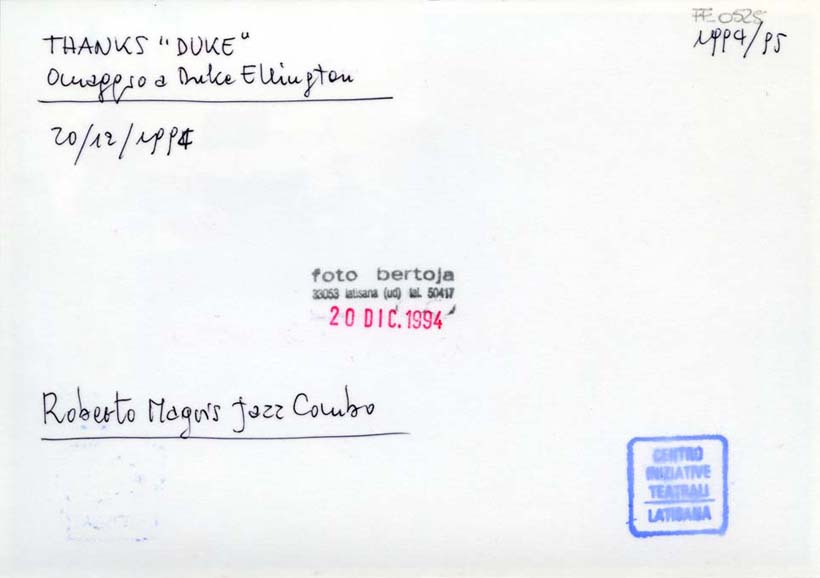 FE 0525
1994/95
THANKS "DUKE"
Omaggio a Duke Ellington
20/12/1994
foto bertoja
33053 latisana (ud) tel. 50417
20 DIC. 1994
Roberto Magris Jazz Combo
CENTRO
INIZIATIVE
TEATRALI
LATISANA